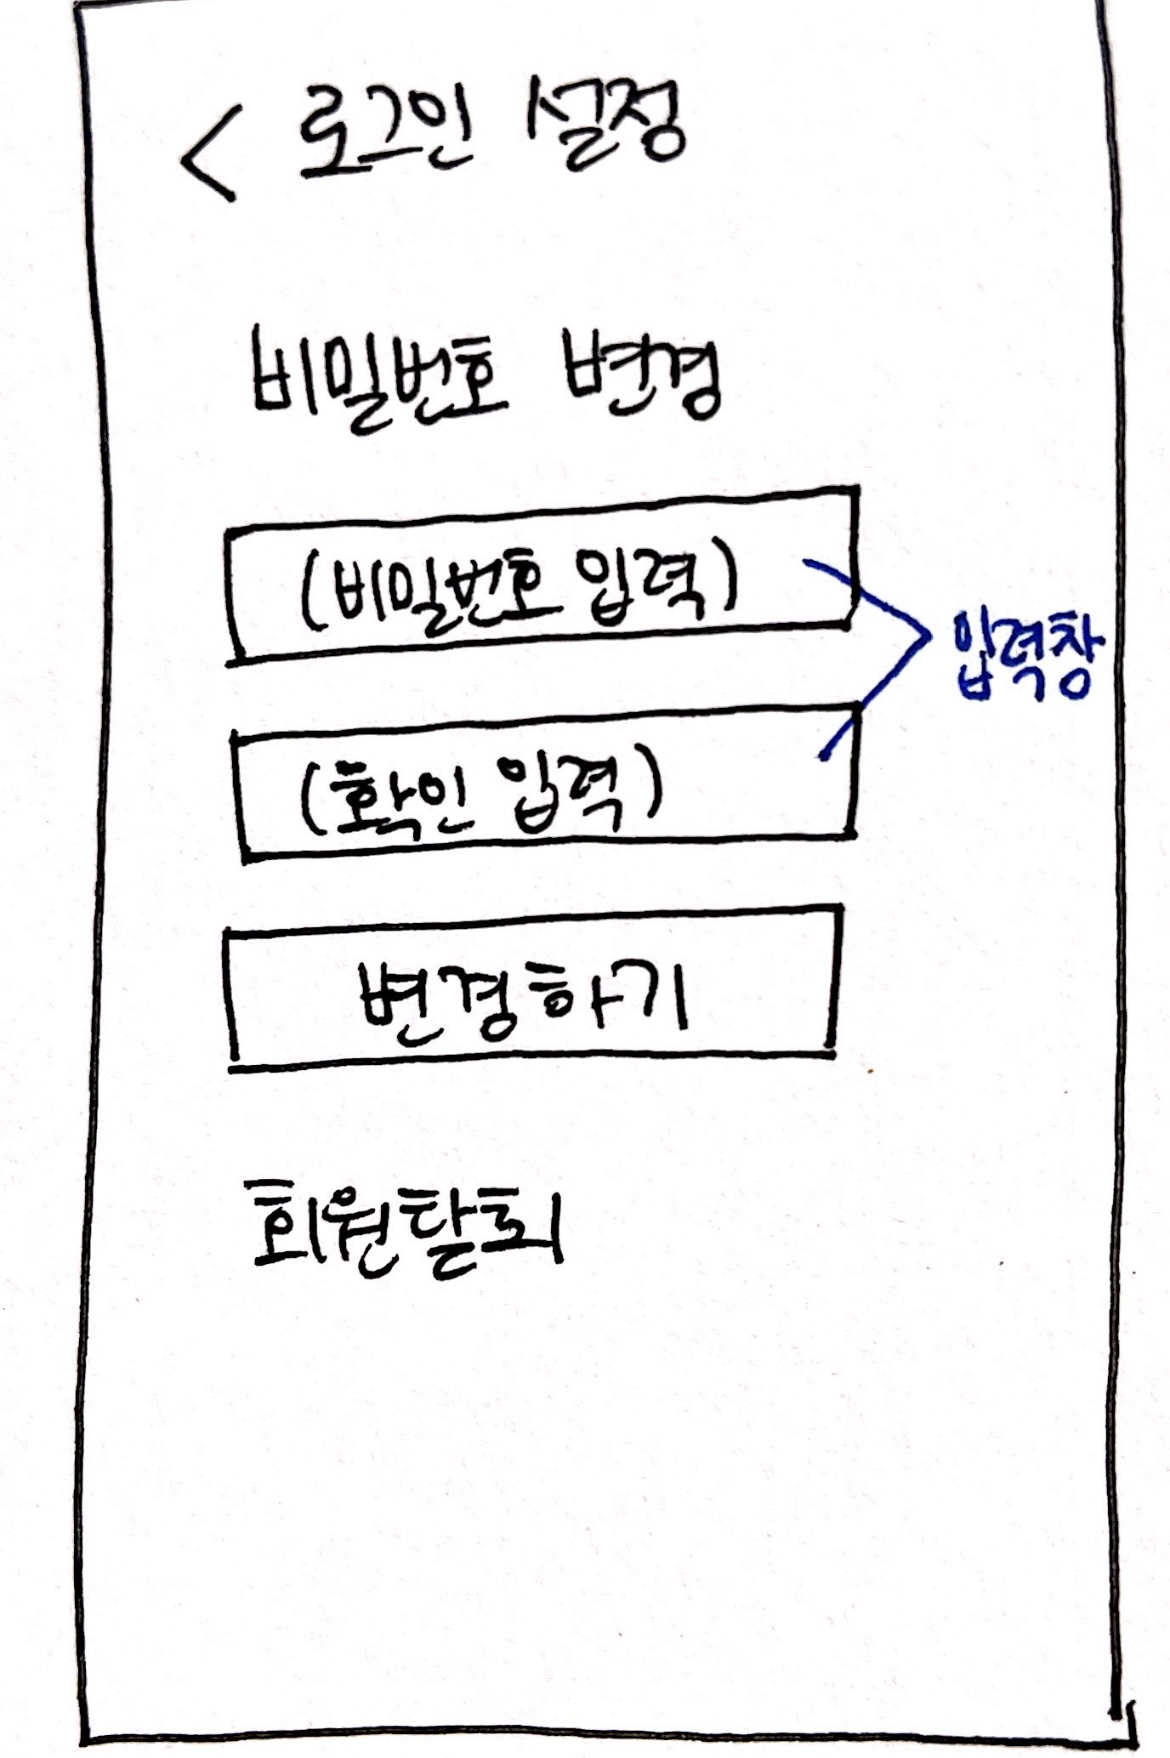 < 로그인 설정
비밀번호 변경
(비밀번호 입력)
입력창
(확인 입력)
변경하기
회원탈퇴